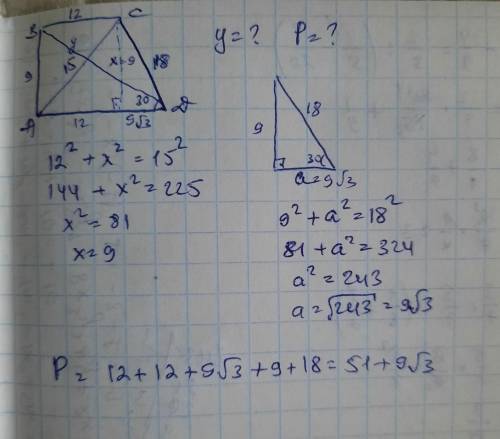 12
B C
y=? P=?
8
9 15 x=9 18
30
A 12 E 9√3 D
18
9
30
a=9√3
12² + x² = 15²
144 + x² = 225
x² = 81
x=9
9² + a² = 18²
81 + a² = 324
a² = 243
a = √243 = 9√3
P = 12 + 12 + 9√3 + 9 + 18 = 51 + 9√3